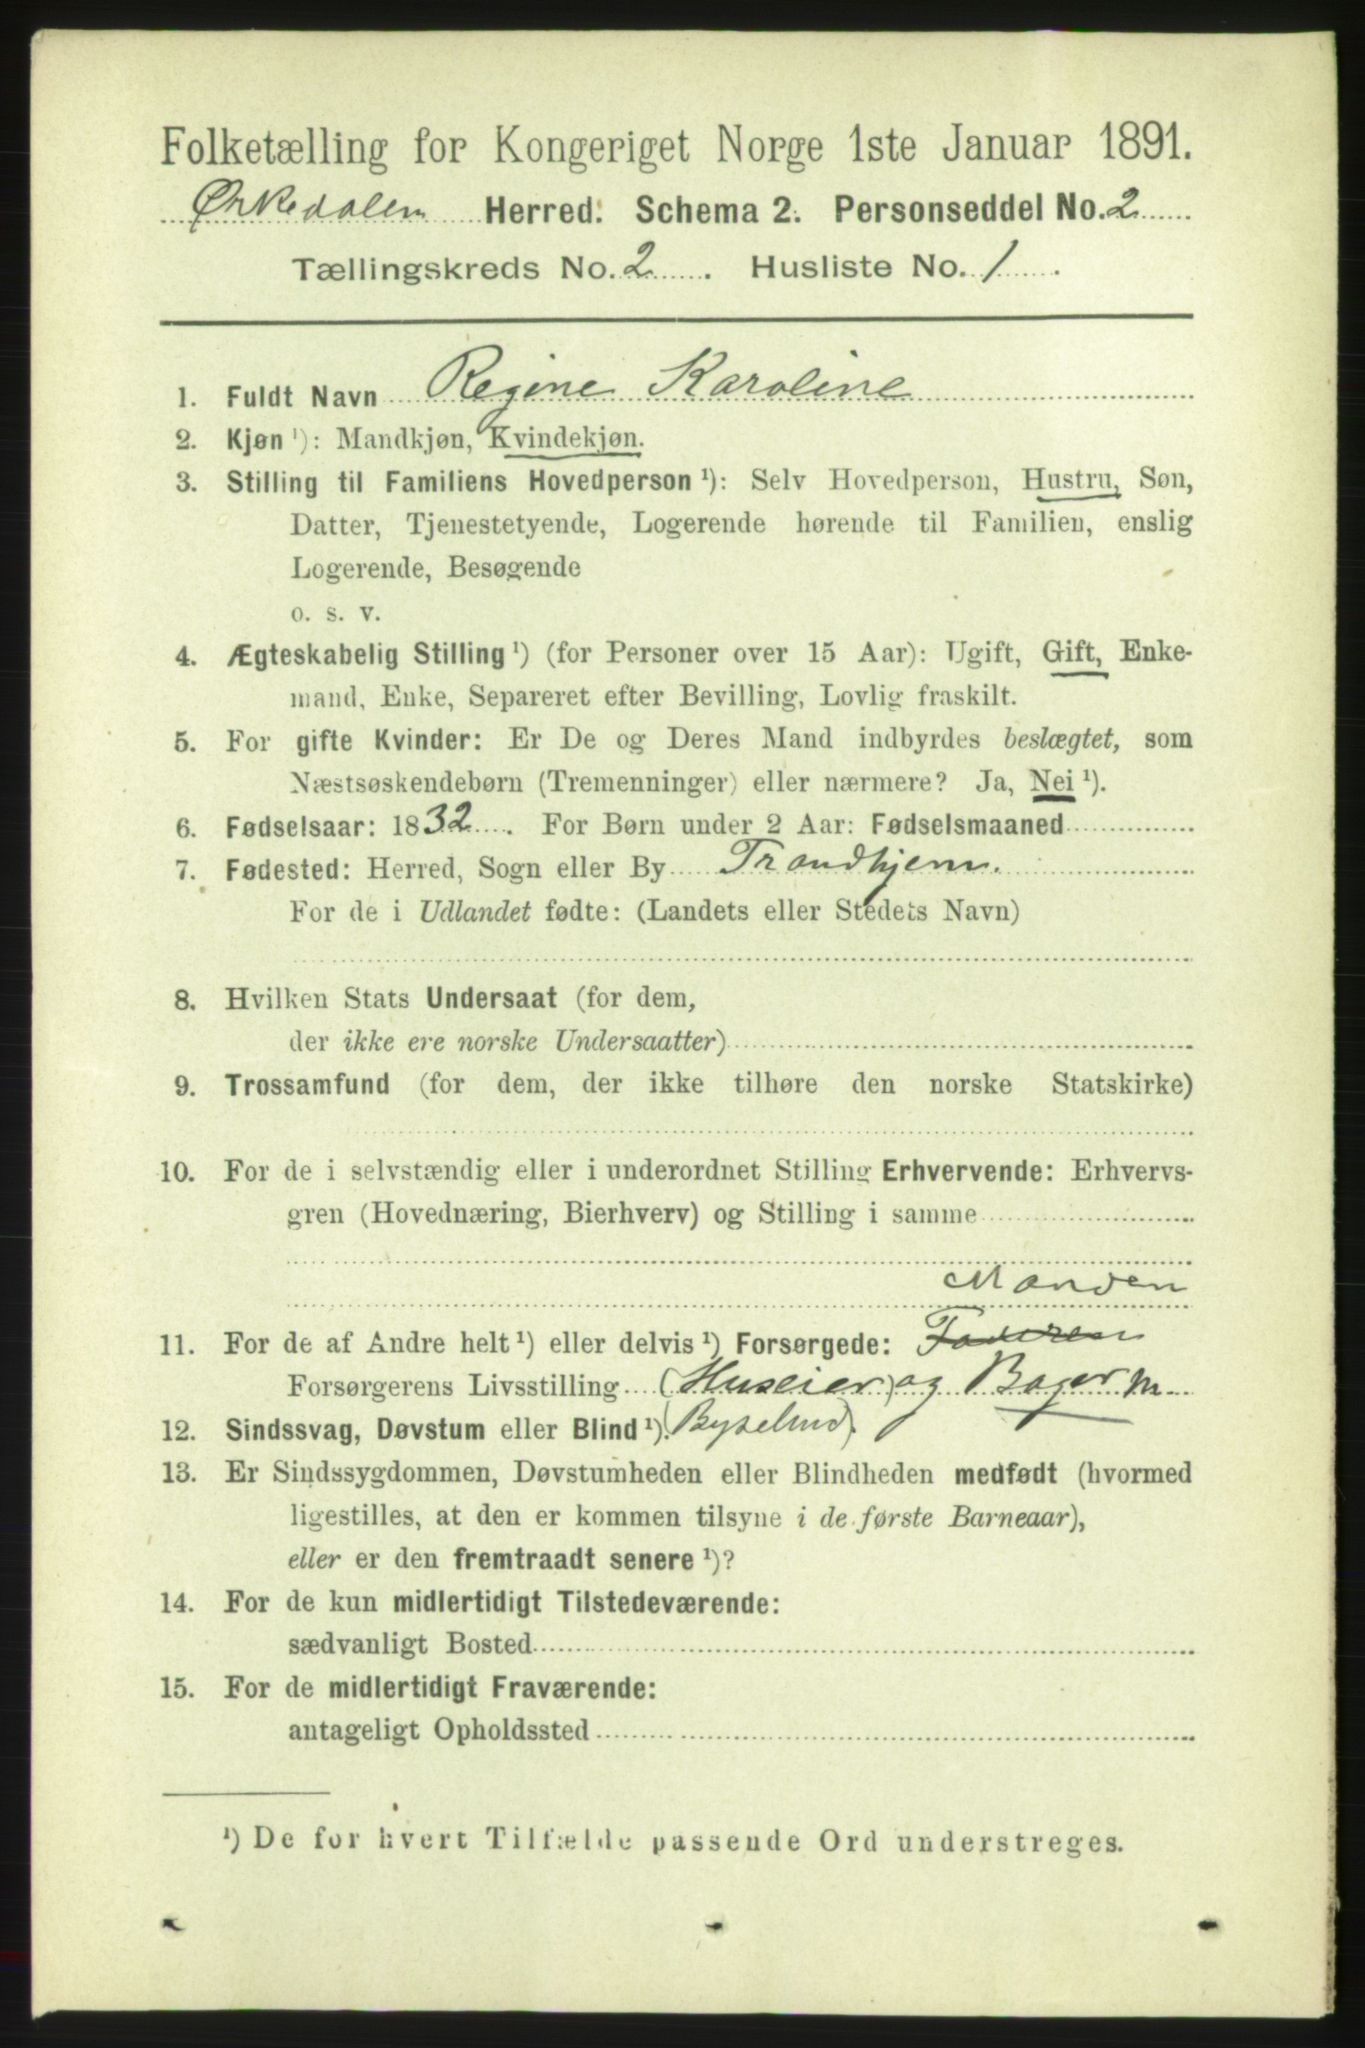 Folketælling for Kongeriget Norge 1ste Januar 1891.
Ørkedalen Herred. Schema 2. Personseddel No. 2
Tællingskreds No. 2. Husliste No. 1.
1. Fuldt Navn Regine Karoline
2. Kjøn ¹): Mandkjøn, Kvindekjøn.
3. Stilling til Familiens Hovedperson ¹): Selv Hovedperson, Hustru, Søn,
Datter, Tjenestetyende, Logerende hørende til Familien, enslig
Logerende, Besøgende
o. s. v.
4. Ægteskabelig Stilling ¹) (for Personer over 15 Aar): Ugift, Gift, Enke-
mand, Enke, Separeret efter Bevilling, Lovlig fraskilt.
5. For gifte Kvinder: Er De og Deres Mand indbyrdes beslægtet, som
Næstsøskendebørn (Tremenninger) eller nærmere? Ja, Nei ¹).
6. Fødselsaar: 1832. For Børn under 2 Aar: Fødselsmaaned
7. Fødested: Herred, Sogn eller By Trondhjem.
For de i Udlandet fødte: (Landets eller Stedets Navn)
8. Hvilken Stats Undersaat (for dem,
der ikke ere norske Undersaatter)
9. Trossamfund (for dem, der ikke tilhøre den norske Statskirke)
10. For de i selvstændig eller i underordnet Stilling Erhvervende: Erhvervs-
gren (Hovednæring, Bierhverv) og Stilling i samme
Manden
11. For de af Andre helt ¹) eller delvis ¹) Forsørgede: Faderen
Forsørgerens Livsstilling (Huseier) og Bager m
12. Sindssvag, Døvstum eller Blind ¹).
13. Er Sindssygdommen, Døvstumheden eller Blindheden medfødt (hvormed
ligestilles, at den er kommen tilsyne i de første Barneaar),
eller er den fremtraadt senere ¹)?
14. For de kun midlertidigt Tilstedeværende:
sædvanligt Bosted
15. For de midlertidigt Fraværende:
antageligt Opholdssted
¹) De for hvert Tilfælde passende Ord understreges.